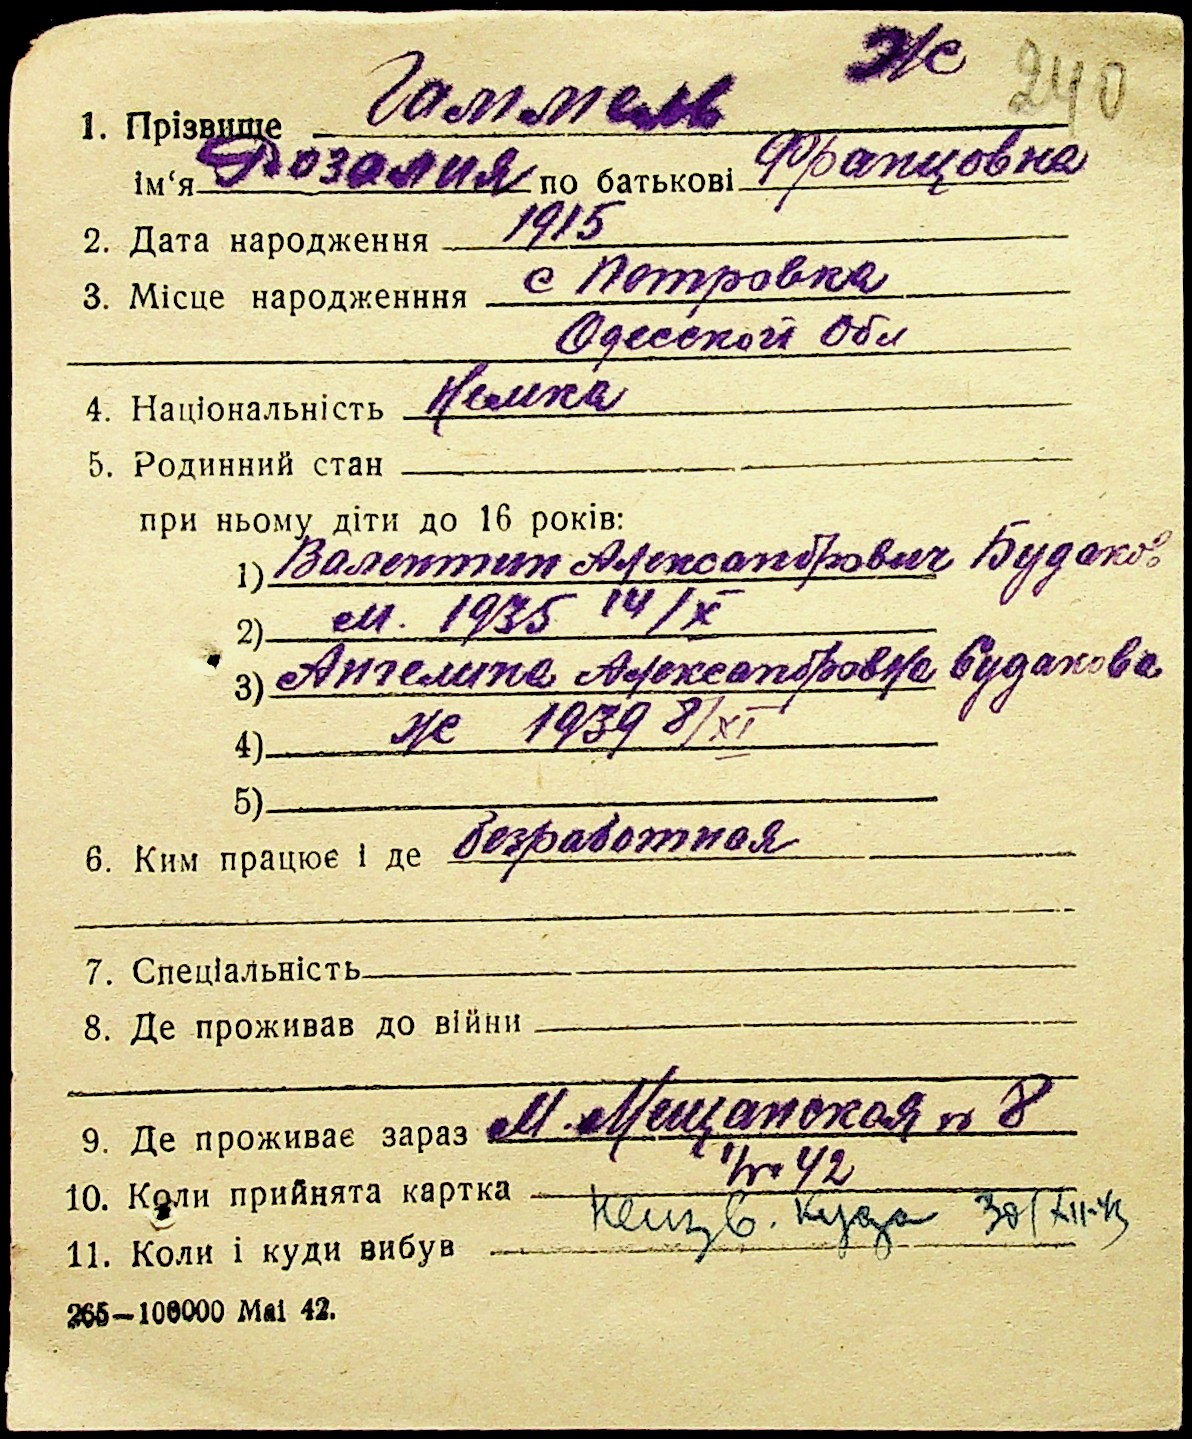 Ж
240
1. Прізвище Гаммель
ім‘я Розалия по батькові Францовна
2. Дата народження 1915
3. Місце народженння с Петровка
Одесской Обл
4. Національність Немка
5. Родинний стан
при ньому діти до 16 років:
1) Валентин Александрович Будаков
2) м. 1935 14/X
3) Ангелина Александровна Будакова
4) ж 1939 8/XI
5)
6. Ким працює і де безработная
7. Спеціальність
8. Де проживав до війни
9. Де проживає зараз М. Мещанская 8
42
10. Коли прийнята картка
11. Коли і куди вибув неизв. куда
265—100000 Mai 42.